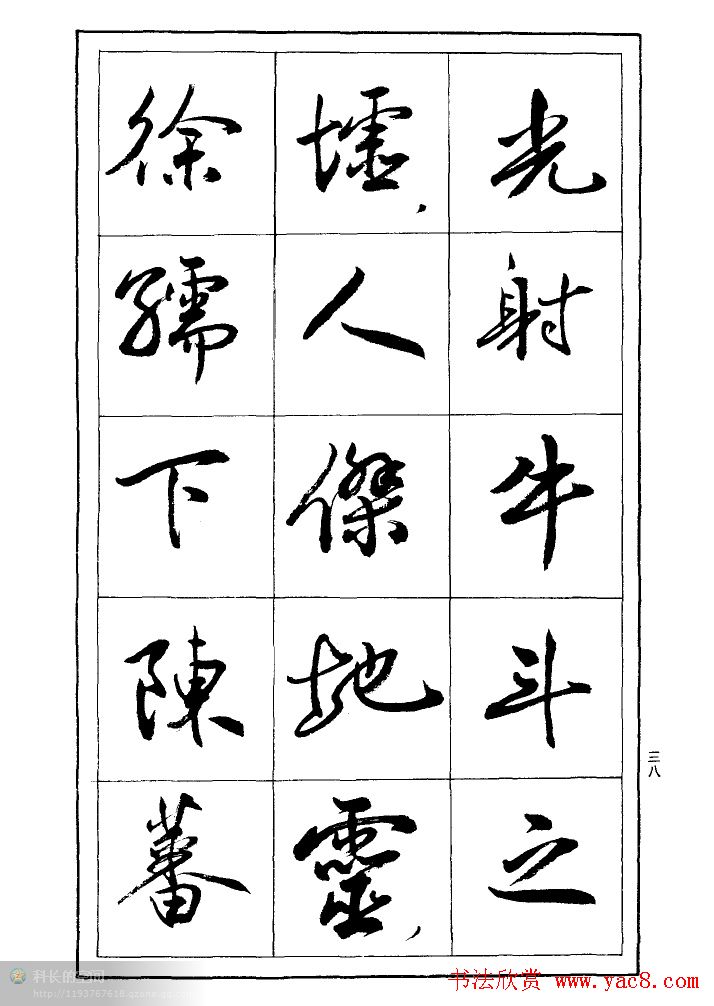 光射牛斗之
墟，人傑地靈，
徐孺下陳蕃
三八
科长的空间
http://1193767618.qzone.qq.com
书法欣赏 www.yac8.com